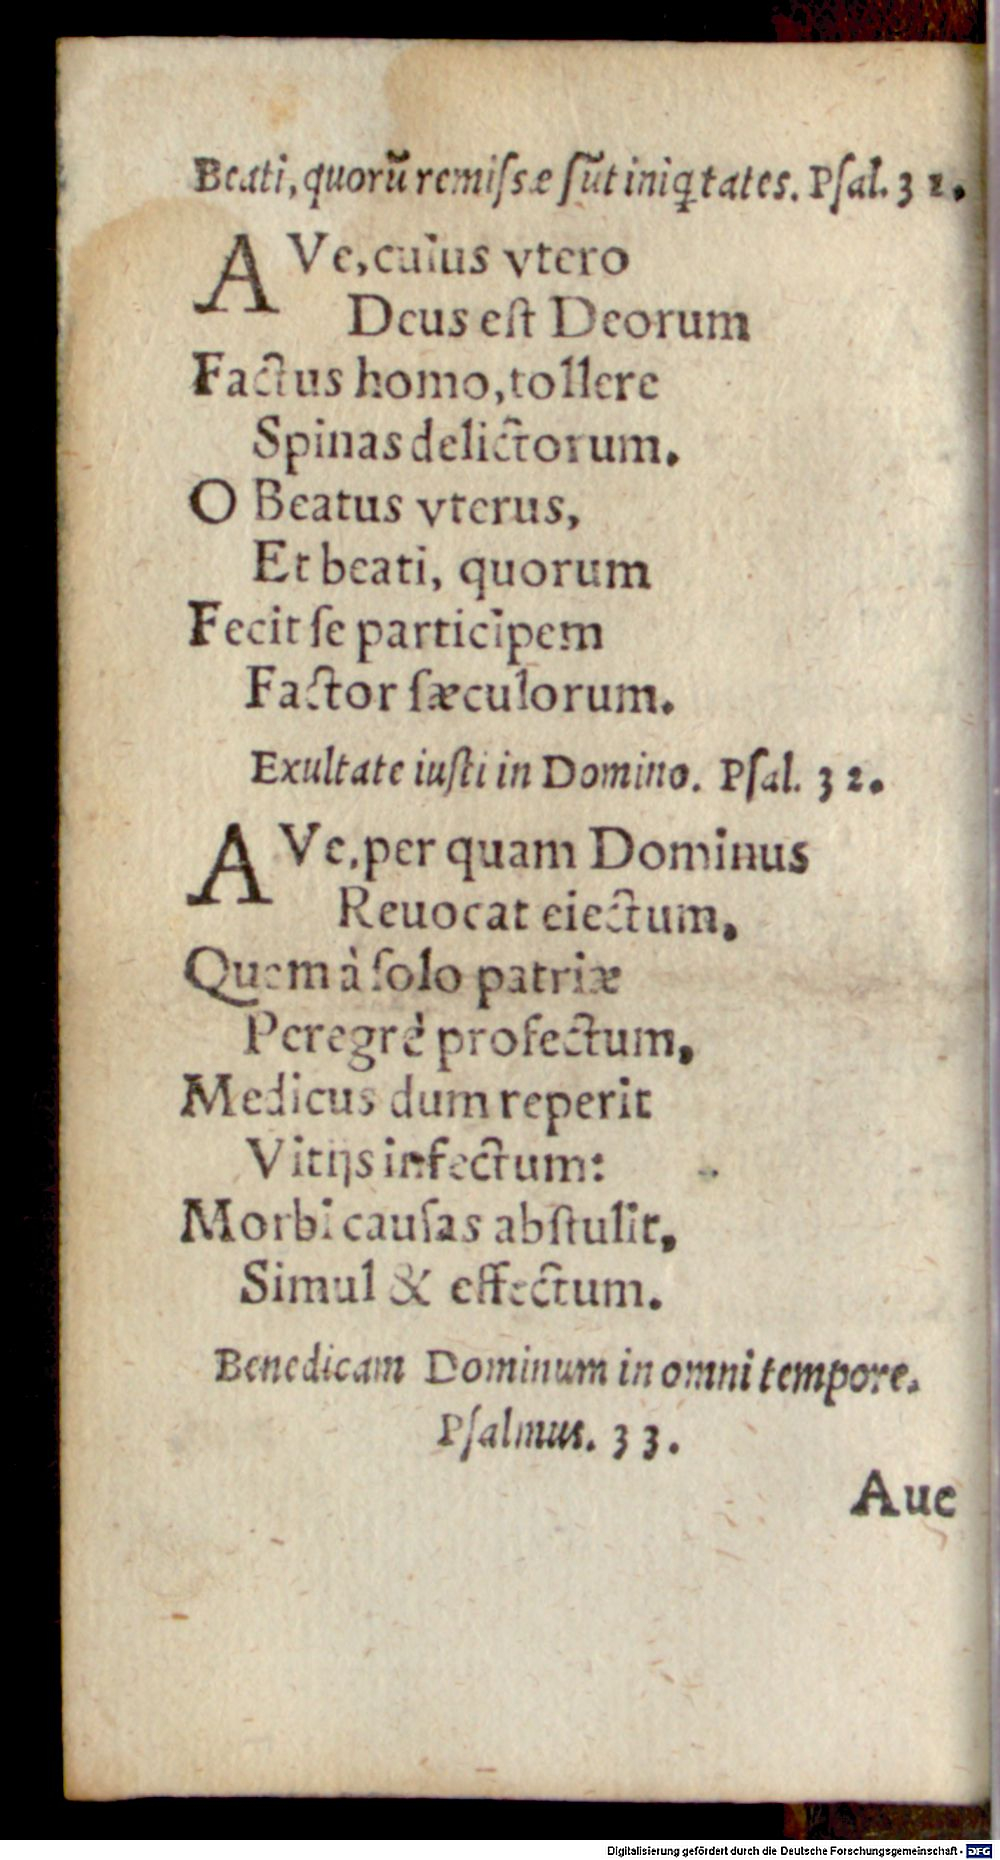 Beati, quorũ remiſsæ ſũt iniq̃tates. Pſal. 32.
AVe, cuius vtero
Deus eſt Deorum
Factus homo, tollere
Spinas delictorum.
O Beatus vterus,
Et beati, quorum
Fecit ſe participem
Factor ſæculorum.
Exultate iuſti in Domino. Pſal. 32.
AVe, per quam Dominus
Reuocat eiectum,
Quem à ſolo patriæ
Peregrè profectum,
Medicus dum reperit
Vitijs infectum:
Morbi cauſas abſtulit,
Simul & effectum.
Benedicam Dominum in omni tempore.
Pſalmus. 33.
Aue
Digitalisierung gefördert durch die Deutsche Forschungsgemeinschaft - DFG